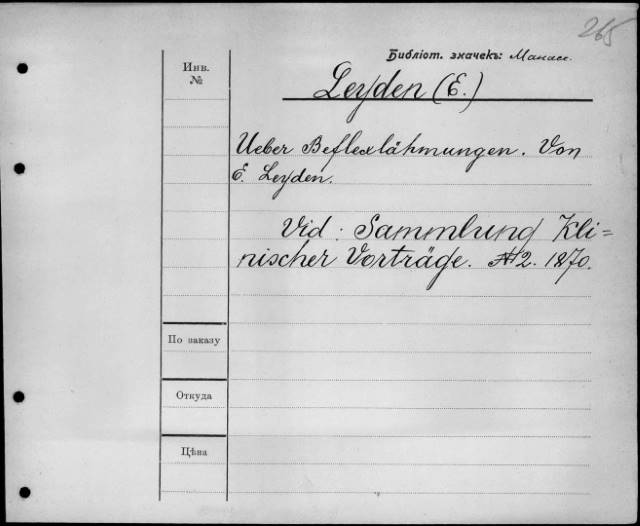 265
Библіот. значекъ: Манасс.
Инв.
№
Leyden (E.)
Ueber Beflexlähmungen. Von
E. Leyden.
Vid: Sammlung Kli=
nischer Vorträge. №2. 1870.
По заказу
Откуда
Цѣна